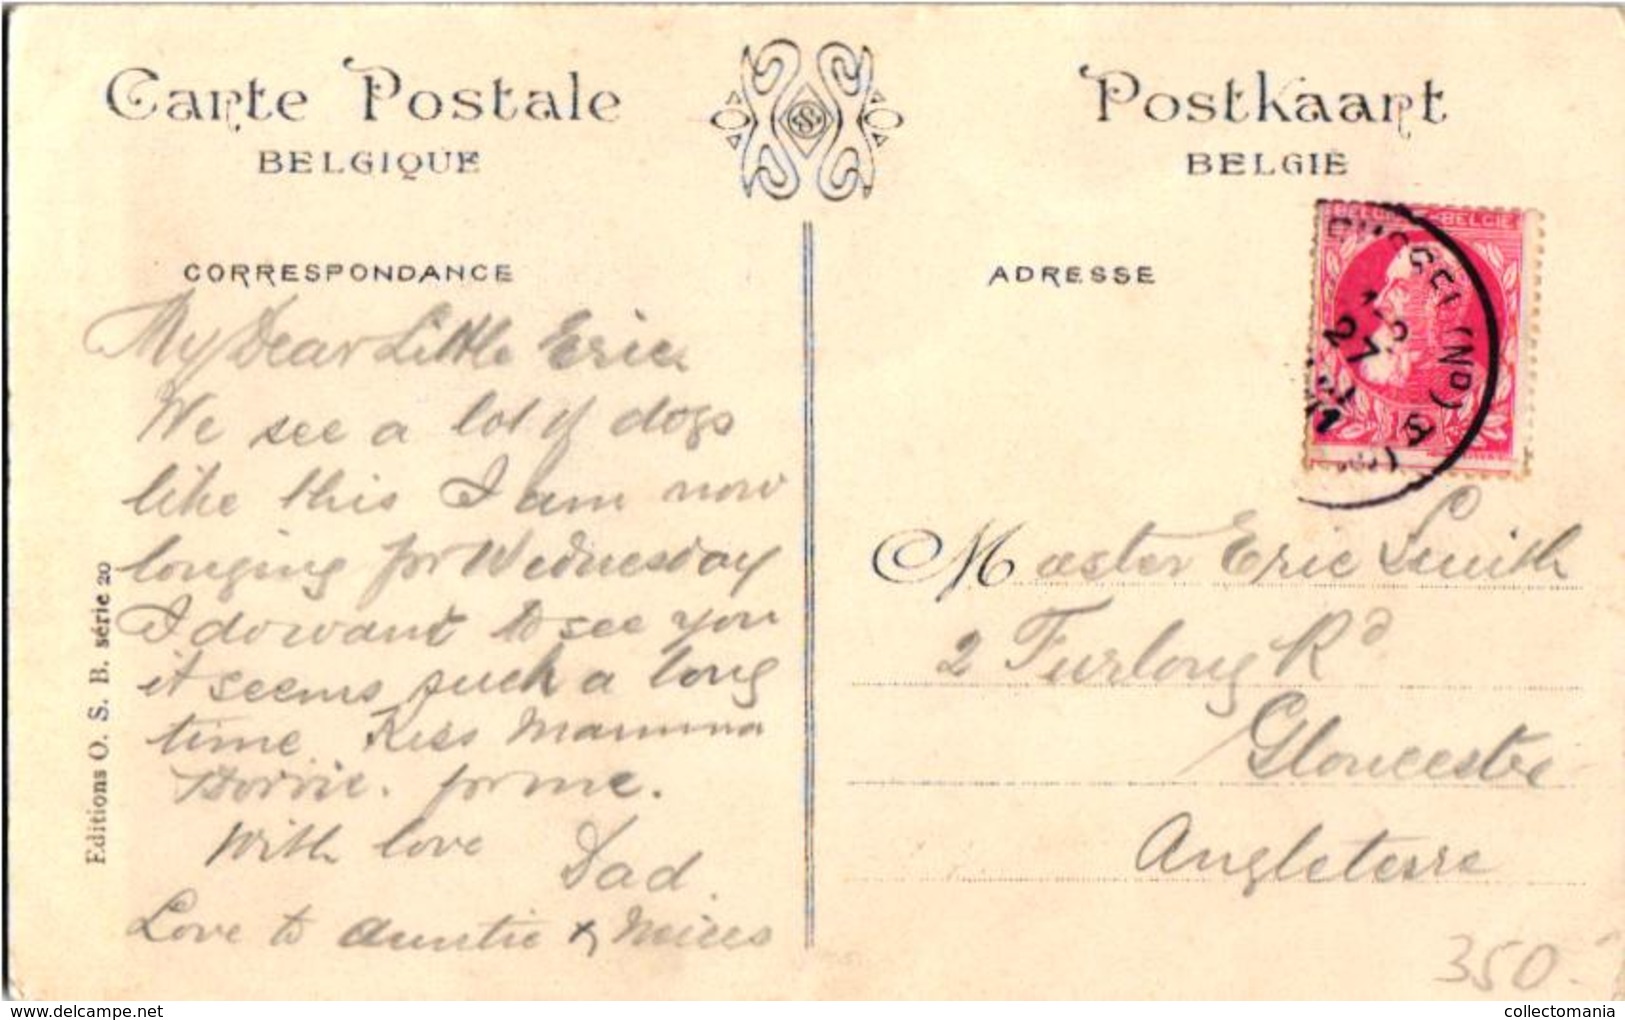 Carte Postale
BELGIQUE
Postkaart
BELGIË
CORRESPONDANCE
My Dear Little Eric
We see a lot of dogs
like this I am now
longing for Wednesday
I do want to see you
it seems such a long
time Kiss Mamma
for me.
With love
Dad
Love to Auntie & Neices
Editions O. S. B. série 20
ADRESSE
BELGIE
(ND)
27
Master Eric Smith
2 Furlong Rd
Gloucester
Angleterre
350.-
www.delcampe.net
collectomania